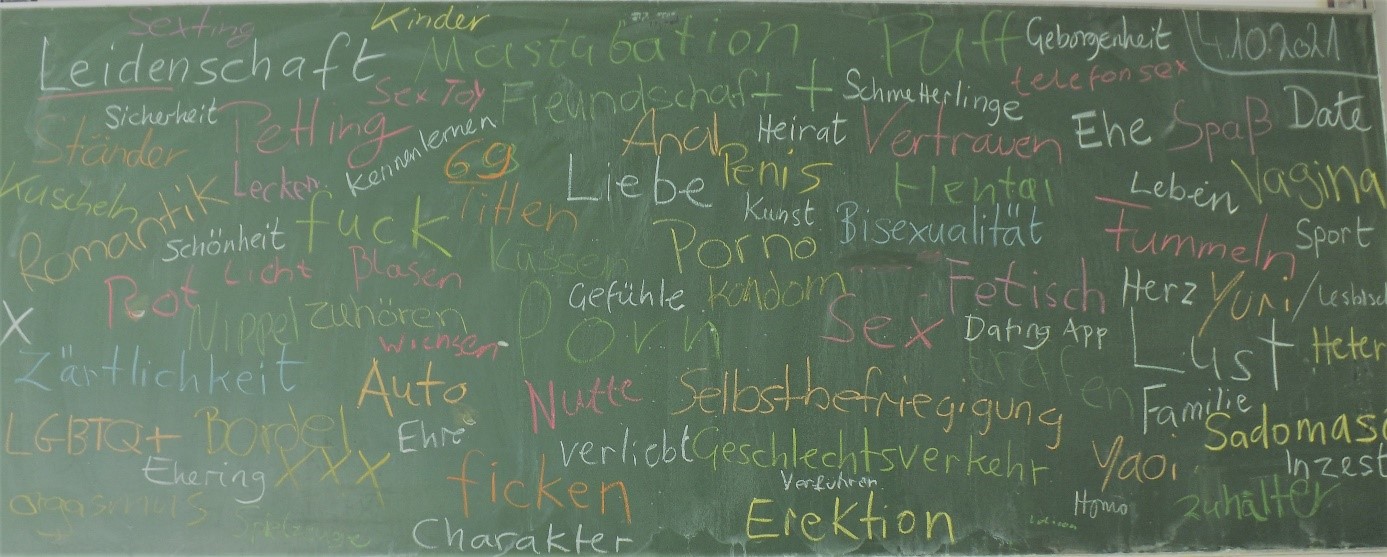 Sexting Kinder Mastabation Puff Geborgenheit 4.10.2021
Leidenschaft Sex Toy Freundschaft + Schmetterlinge telefonsex
Sicherheit Petting Kennenlernen Anal Heirat Vertrauen Ehe Spaß Date
Ständer Lecken 69 Liebe Penis Hentai Leben Vagina
Kuscheln Romantik fuck Titten Kunst Bisexualität Fummeln Sport
Schönheit Küssen Porno
Rot Licht Blasen Gefühle Kondom Fetisch Herz Yuri / Lesbisch
X Nippel zuhören Porn Sex Dating App Lust
wichsen Heter
Zärtlichkeit Auto Nutte Selbstbefriegigung Familie
LGBTQ+ Bordel Ehre verliebt Geschlechtsverkehr Yaoi Sadomaso
Ehering XXX ficken Verführen Homo Inzest
orgasimuls Charakter Erektion zuhälter